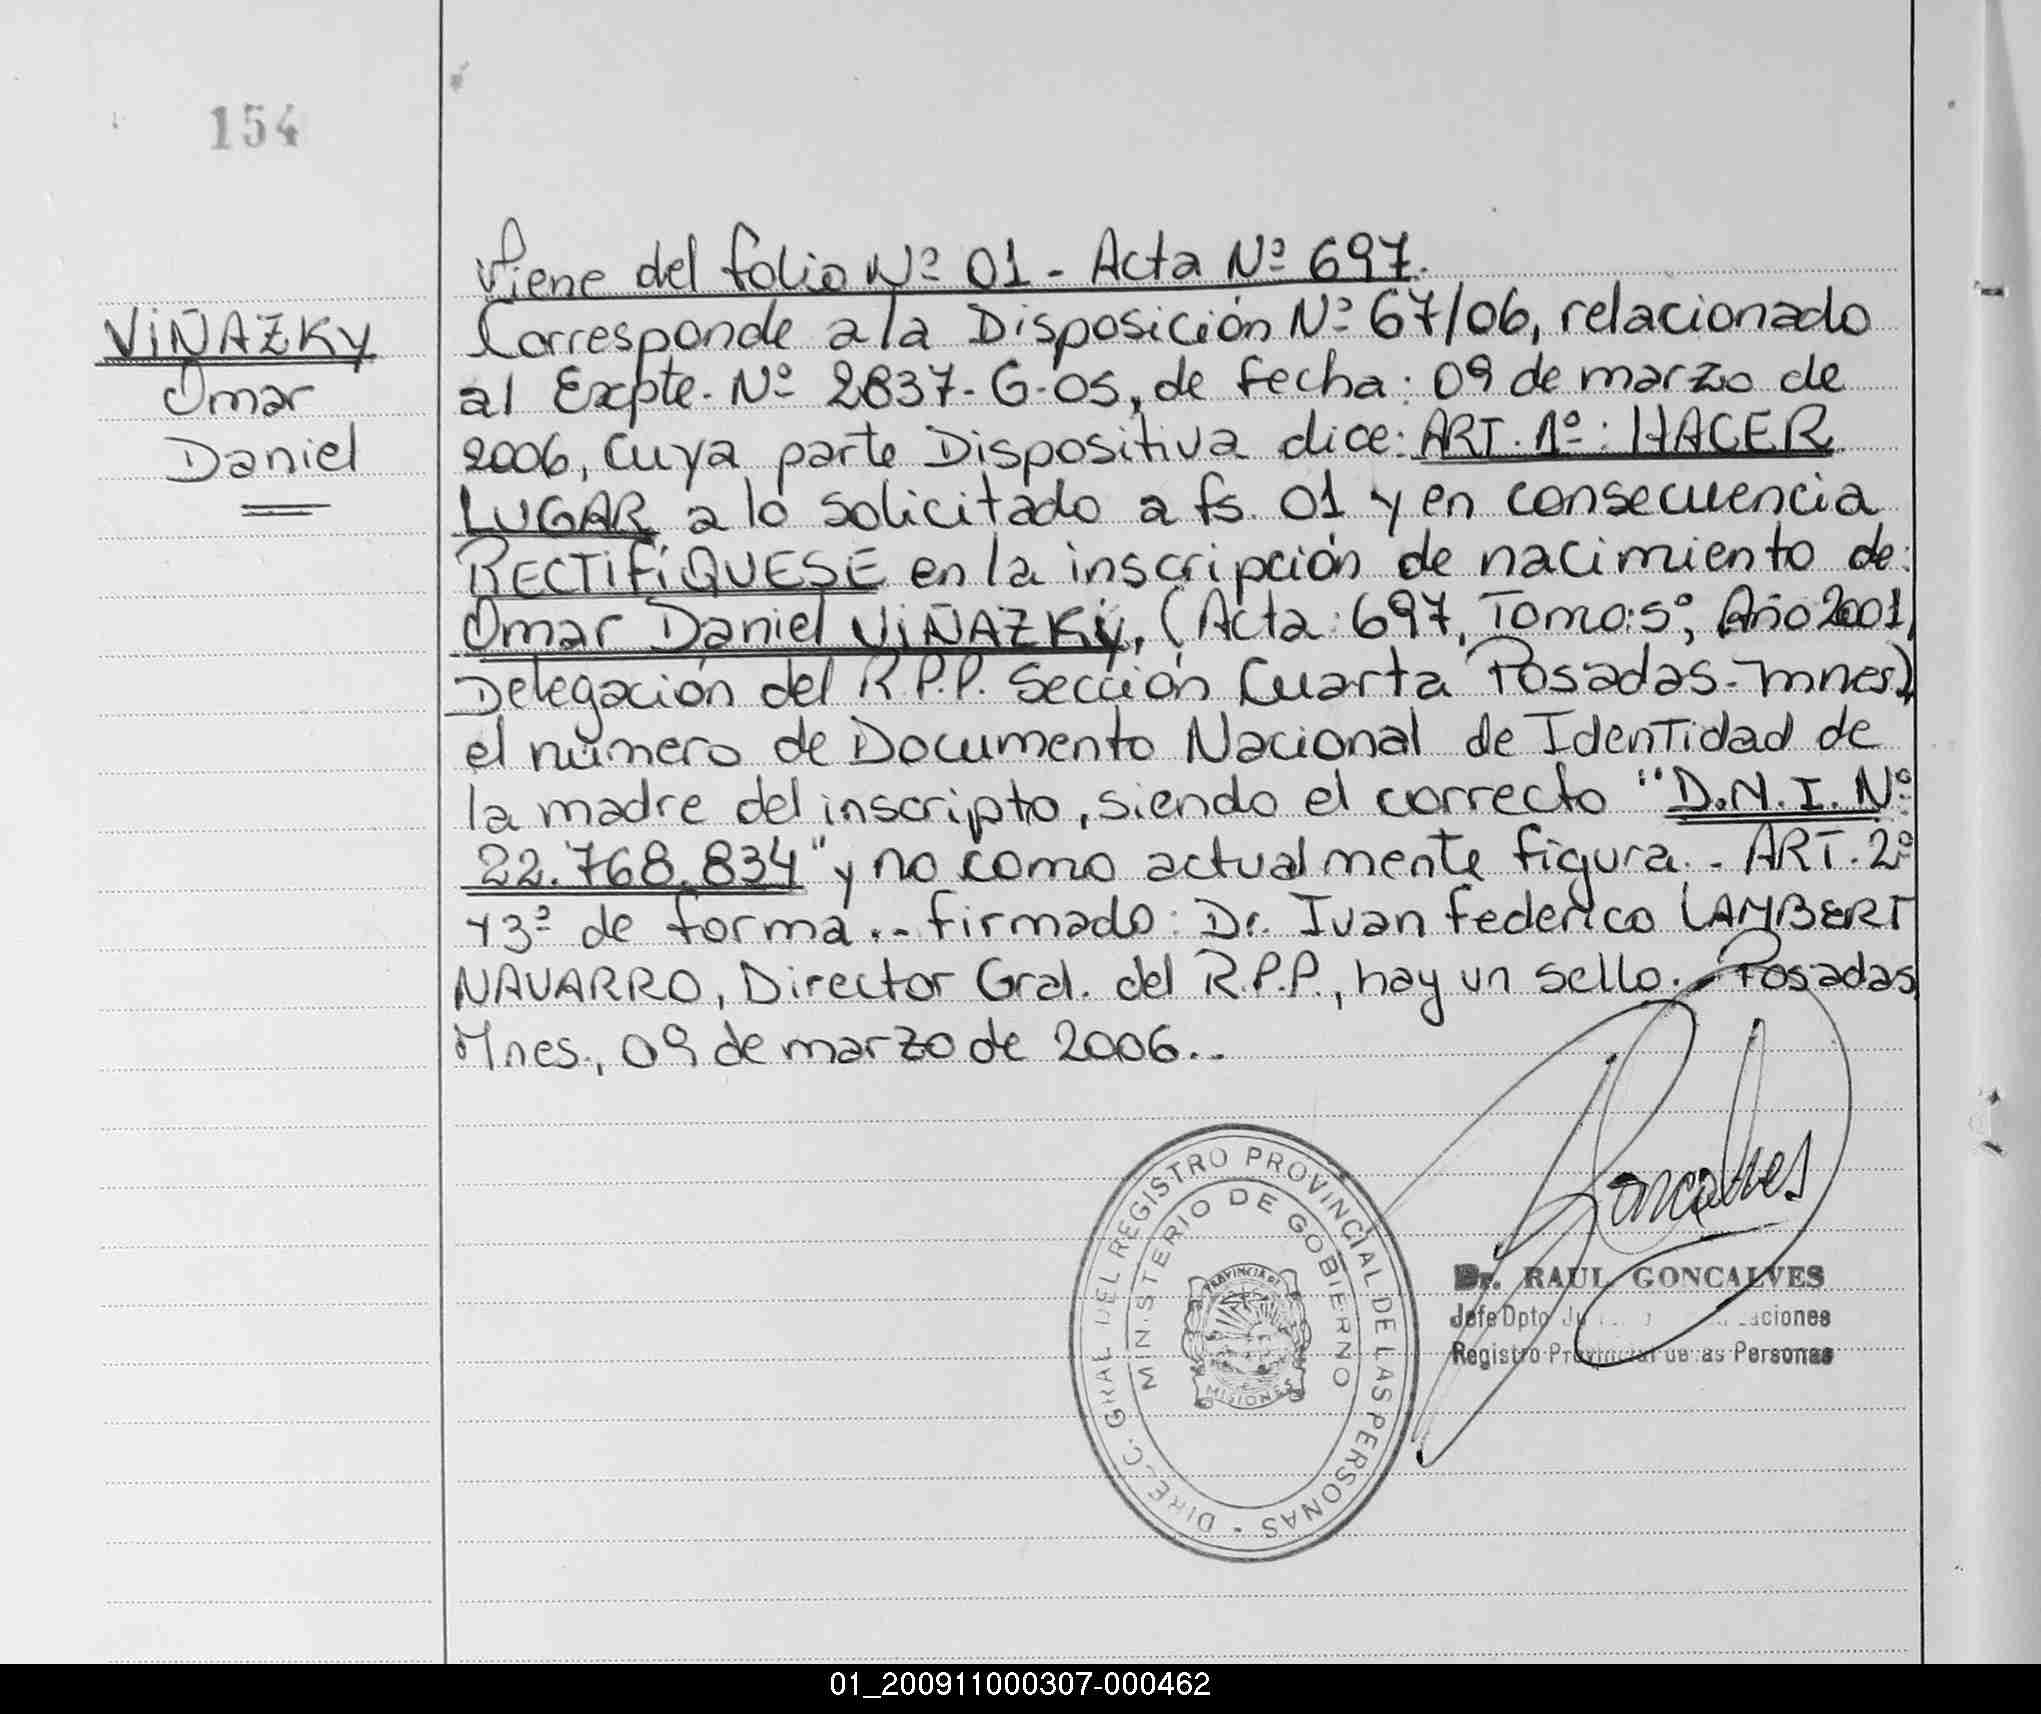 154
Viene del folio Nº 01 - Acta Nº 697.
VIÑAZKY
Omar
Daniel
Corresponde a la Disposición Nº 67/06, relacionado
al Expte. Nº 2837-G-05, de fecha: 09 de marzo de
2006, cuya parte Dispositiva dice: ART. 1º: HACER
LUGAR a lo solicitado a fs. 01 y en consecuencia
RECTIFÍQUESE en la inscripción de nacimiento de:
Omar Daniel VIÑAZKY, (Acta: 697, Tomo: 5º, Año 2001,
Delegación del R.P.P. Sección Cuarta Posadas-Mnes)
el número de Documento Nacional de Identidad de
la madre del inscripto, siendo el correcto "D.N.I. Nº
22.768.834" y no como actualmente figura.- ART. 2º
y 3º de forma.- firmado: Dr. Ivan Federico LAMBERT
NAVARRO, Director Gral. del R.P.P., hay un sello.- Posadas
Mnes., 09 de marzo de 2006.-
DIREC. GRAL DEL REGISTRO PROVINCIAL DE LAS PERSONAS
MINISTERIO DE GOBIERNO
PROVINCIA DE
MISIONES
Goncalves
Dr. RAUL GONCALVES
Jefe Dpto
Registro Provincial de las Personas
01_200911000307-000462